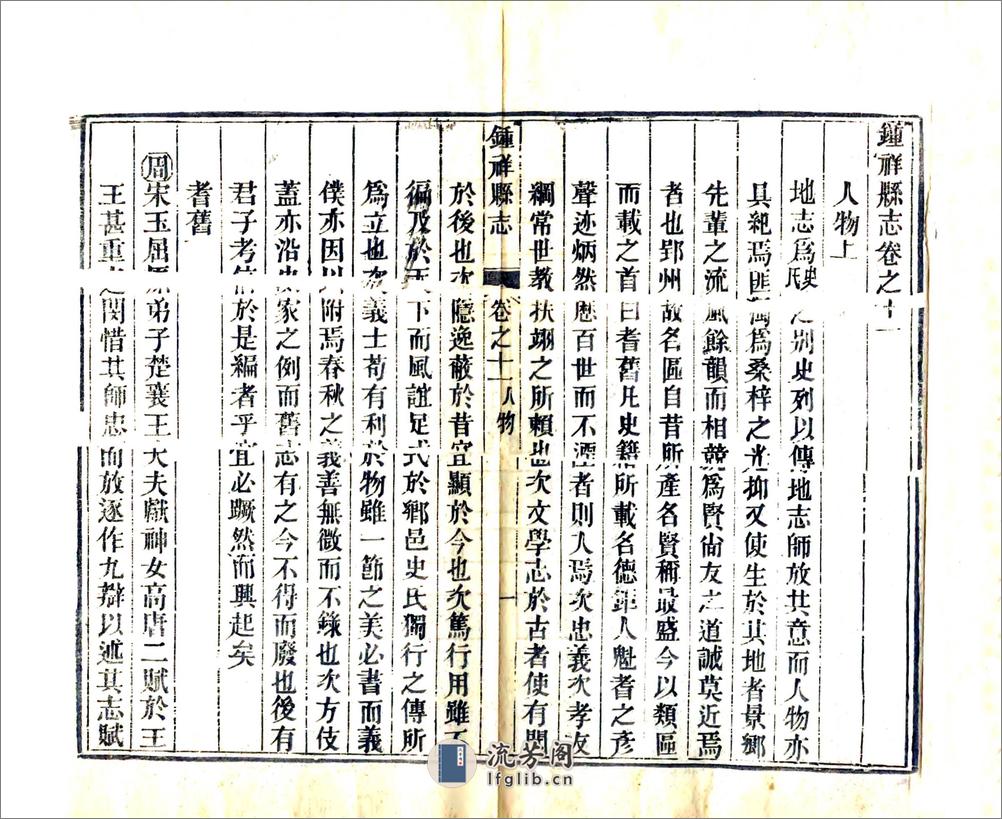 鍾祥縣志卷之十一
人物上
地志爲史氏之別史列以傳地志師放其意而人物亦
具紀焉匪獨爲桑梓之光抑又使生於其地者景鄉
先輩之流風餘韻而相競爲賢尙友之道誠莫近焉
者也郢州故名區自昔所產名賢稱最盛今以類區
而載之首曰耆舊凡史籍所載名德鉅人魁耆之彥
聲迹炳然歷百世而不湮者則人焉次忠義次孝友
綱常世教扶翊之所賴也次文學志於古者使有聞
鍾祥縣志 卷之十一 人物 一
於後也次隱逸蔽於昔宜顯於今也次篤行用雖不
徧及於天下而風誼足式於鄉邑史氏獨行之傳所
爲立也次義士苟有利於物雖一節之美必書而義
僕亦因以附焉春秋之義善無微而不錄也次方伎
蓋亦沿史家之例而舊志有之今不得而廢也後有
君子考信於是編者乎宜必蹶然而興起矣
耆舊
周宋玉屈原弟子楚襄王大夫獻神女高唐二賦於王
王甚重之閔惜其師忠而放逐作九辯以述其志賦
流芳阁
lfglib.cn